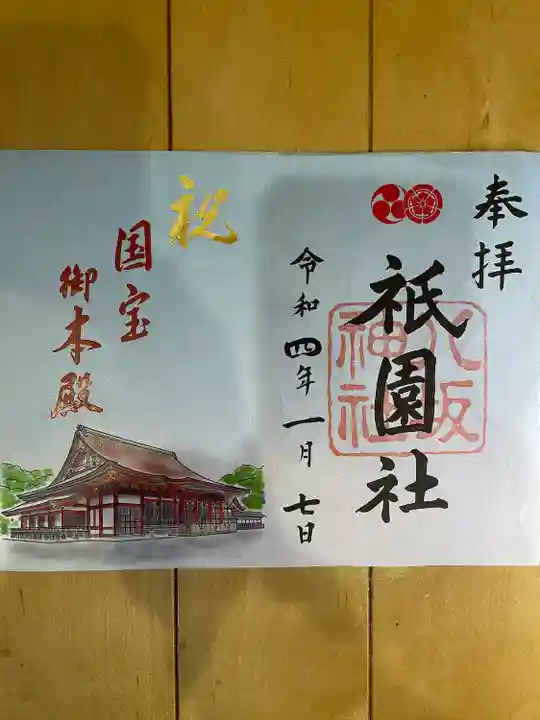 奉拝
祇園社
八坂
神社
令和四年一月七日
祝
国宝
御本殿